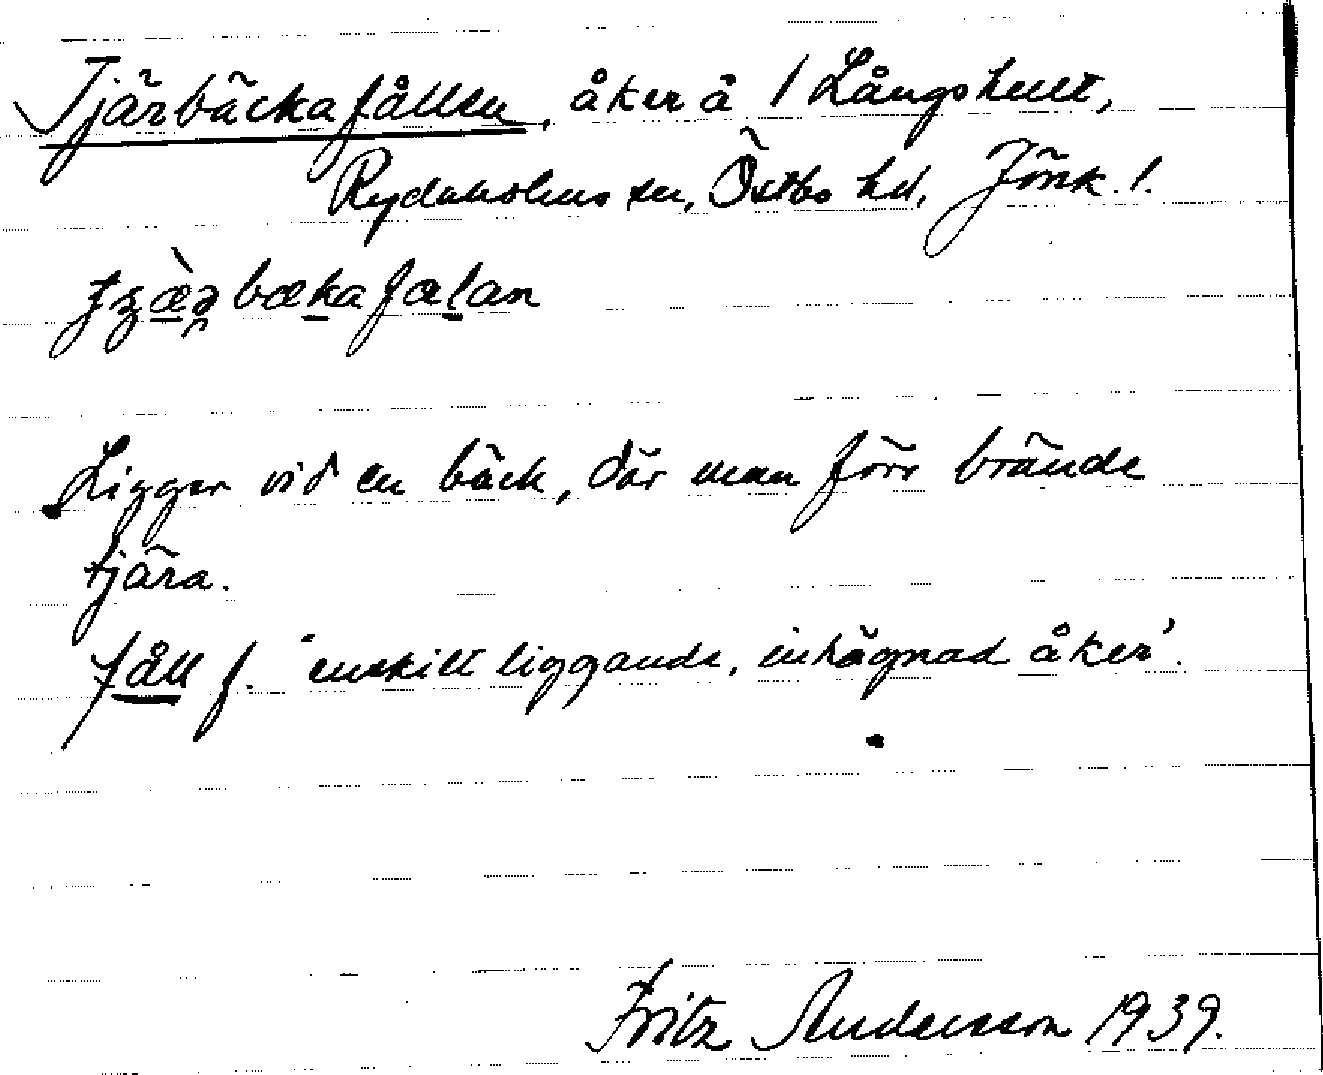 Tjärbäckafållen, åker å / Långshult,
Rydaholms sn, Östbo hd, Jönk. l.
Ligger vid en bäck, där man förr brände
tjära.
fåll f. 'enskilt liggande, inhägnad åker'.
Fritz Andersson 1939.